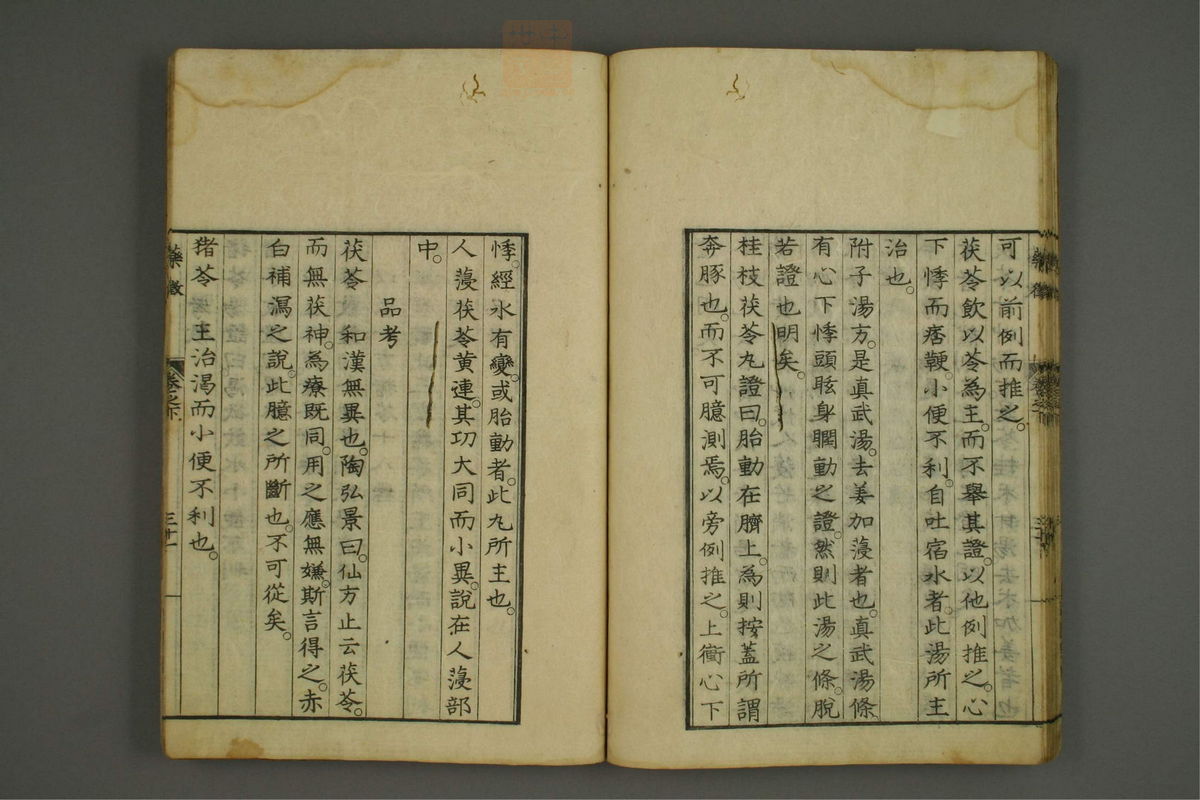 可以前例而推之。
茯苓飲以苓為主。而不舉其證。以他例推之。心
下悸而痞鞕。小便不利。自吐宿水者。此湯所主
治也。
附子湯方。是真武湯。去姜加薓者也。真武湯條
有心下悸頭眩身瞤動之證。然則此湯之條。脫
若證也明矣。
桂枝茯苓丸證曰。胎動在臍上。為則按蓋所謂
奔豚也。而不可臆測焉。以旁例推之。上衝心下
悸。經水有變。或胎動者。此丸所主也。
人薓茯苓黄連。其功大同而小異。說在人薓部
中。
品考
茯苓 和漢無異也。陶弘景曰。仙方止云茯苓。
而無茯神。為療既同。用之應無嫌。斯言得之。赤
白補瀉之說。此臆之所斷也。不可從矣。
猪苓 主治渴而小便不利也。
藥徵 卷之下 三十一